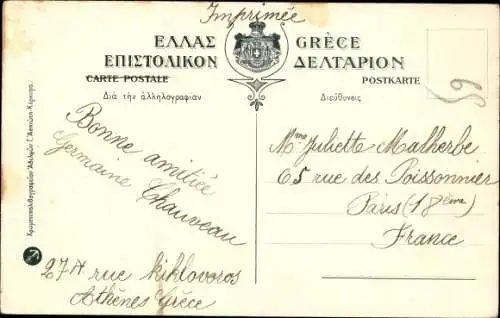 Imprimée
ΕΛΛΑΣ GRÈCE
ΕΠΙΣΤΟΛΙΚΟΝ ΔΕΛΤΑΡΙΟΝ
CARTE POSTALE POSTKARTE
Διὰ τὴν ἀλληλογραφίαν Διεύθυνσις
Bonne amitiée
Germaine Chauveau
27A rue Kihlovoros
Athènes Grèce
Mme Juliette Malherbe
65 rue des Poissonnier
Paris (18ème)
France